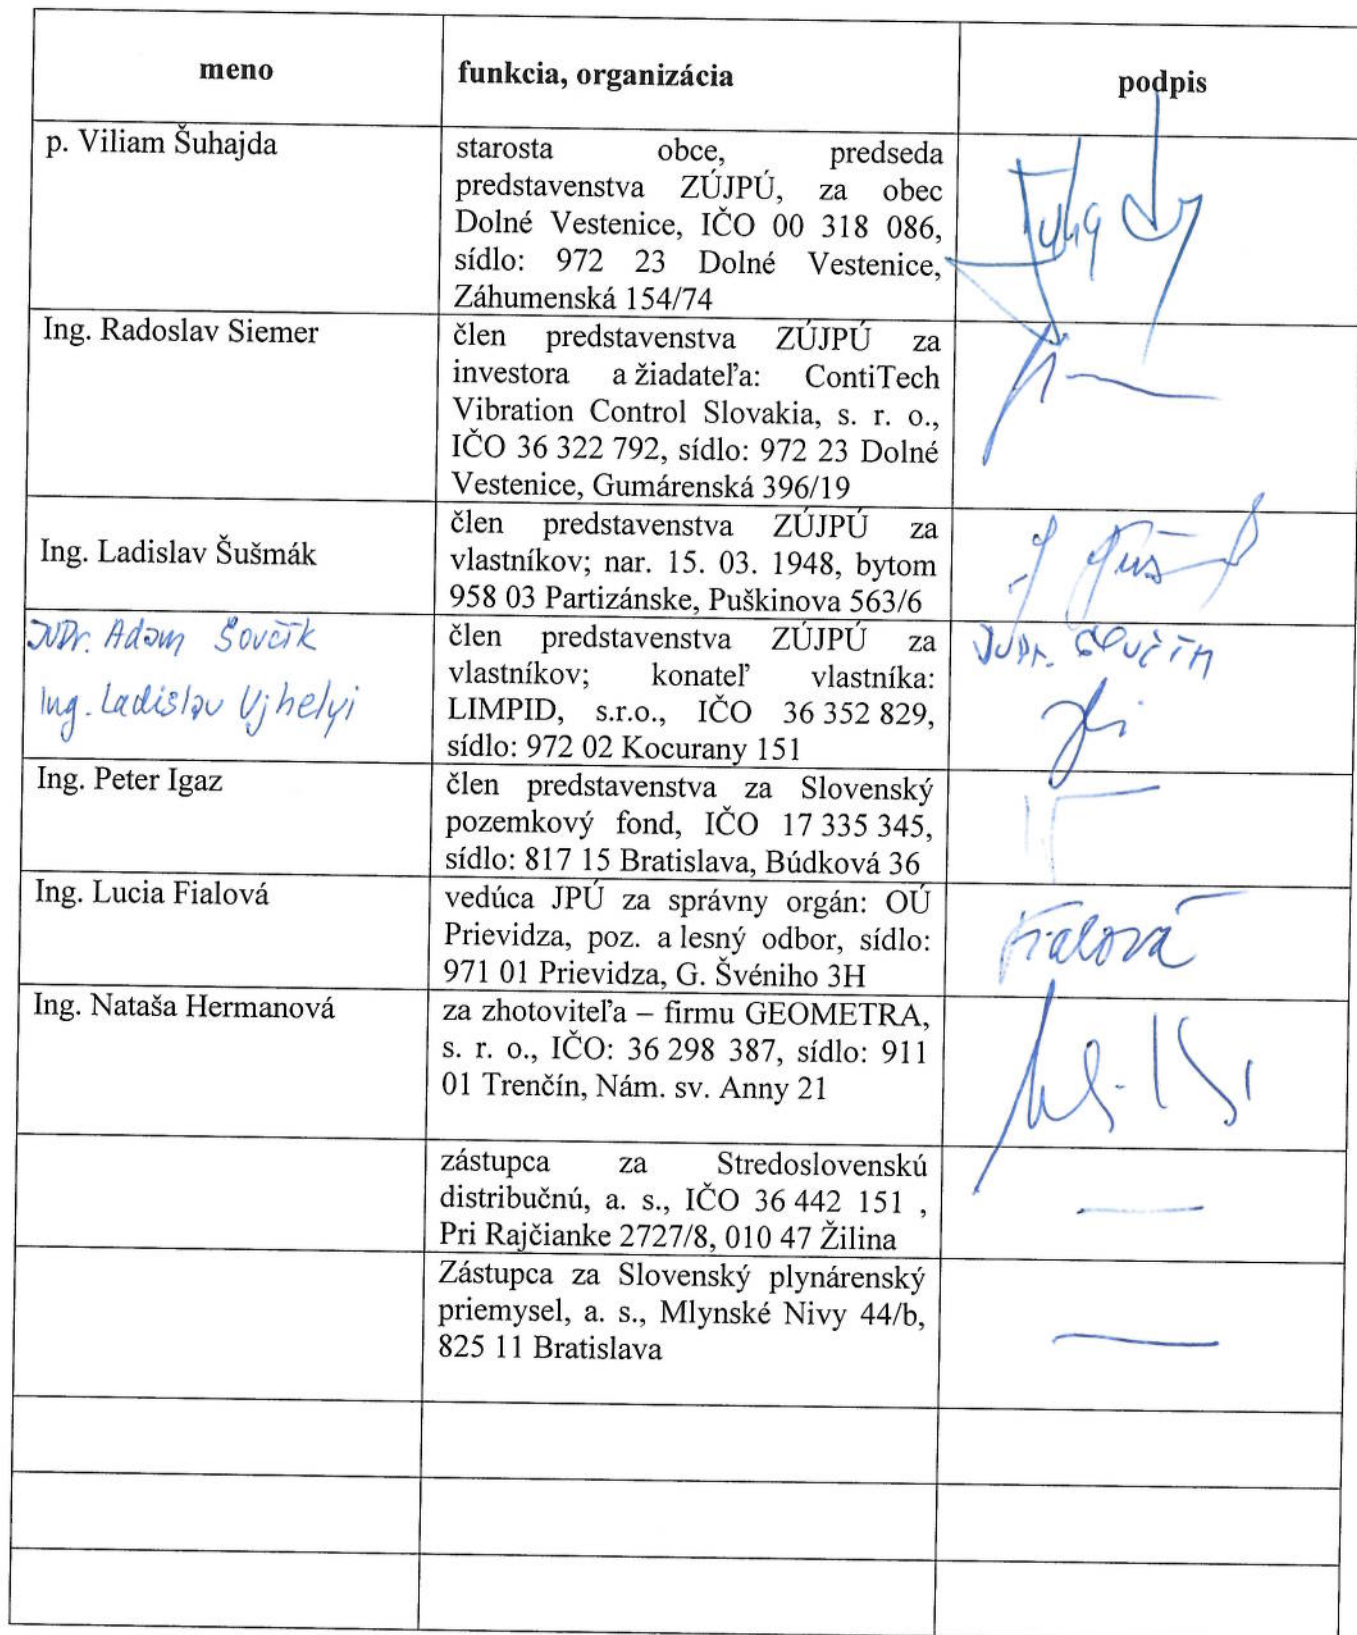 meno
funkcia, organizácia
podpis
p. Viliam Šuhajda
starosta obce, predseda
predstavenstva ZÚJPÚ, za obec
Dolné Vestenice, IČO 00 318 086,
sídlo: 972 23 Dolné Vestenice,
Záhumenská 154/74
Ing. Radoslav Siemer
člen predstavenstva ZÚJPÚ za
investora a žiadateľa: ContiTech
Vibration Control Slovakia, s. r. o.,
IČO 36 322 792, sídlo: 972 23 Dolné
Vestenice, Gumárenská 396/19
Ing. Ladislav Šušmák
člen predstavenstva ZÚJPÚ za
vlastníkov; nar. 15. 03. 1948, bytom
958 03 Partizánske, Puškinova 563/6
JUDr. Adam Šovčík
Ing. Ladislav Ujhelyi
člen predstavenstva ZÚJPÚ za
vlastníkov; konateľ vlastníka:
LIMPID, s.r.o., IČO 36 352 829,
sídlo: 972 02 Kocurany 151
JUDr.
Ing. Peter Igaz
člen predstavenstva za Slovenský
pozemkový fond, IČO 17 335 345,
sídlo: 817 15 Bratislava, Búdková 36
Ing. Lucia Fialová
vedúca JPÚ za správny orgán: OÚ
Prievidza, poz. a lesný odbor, sídlo:
971 01 Prievidza, G. Švéniho 3H
Fialová
Ing. Nataša Hermanová
za zhotoviteľa – firmu GEOMETRA,
s. r. o., IČO: 36 298 387, sídlo: 911
01 Trenčín, Nám. sv. Anny 21
zástupca za Stredoslovenskú
distribučnú, a. s., IČO 36 442 151 ,
Pri Rajčianke 2727/8, 010 47 Žilina
Zástupca za Slovenský plynárenský
priemysel, a. s., Mlynské Nivy 44/b,
825 11 Bratislava